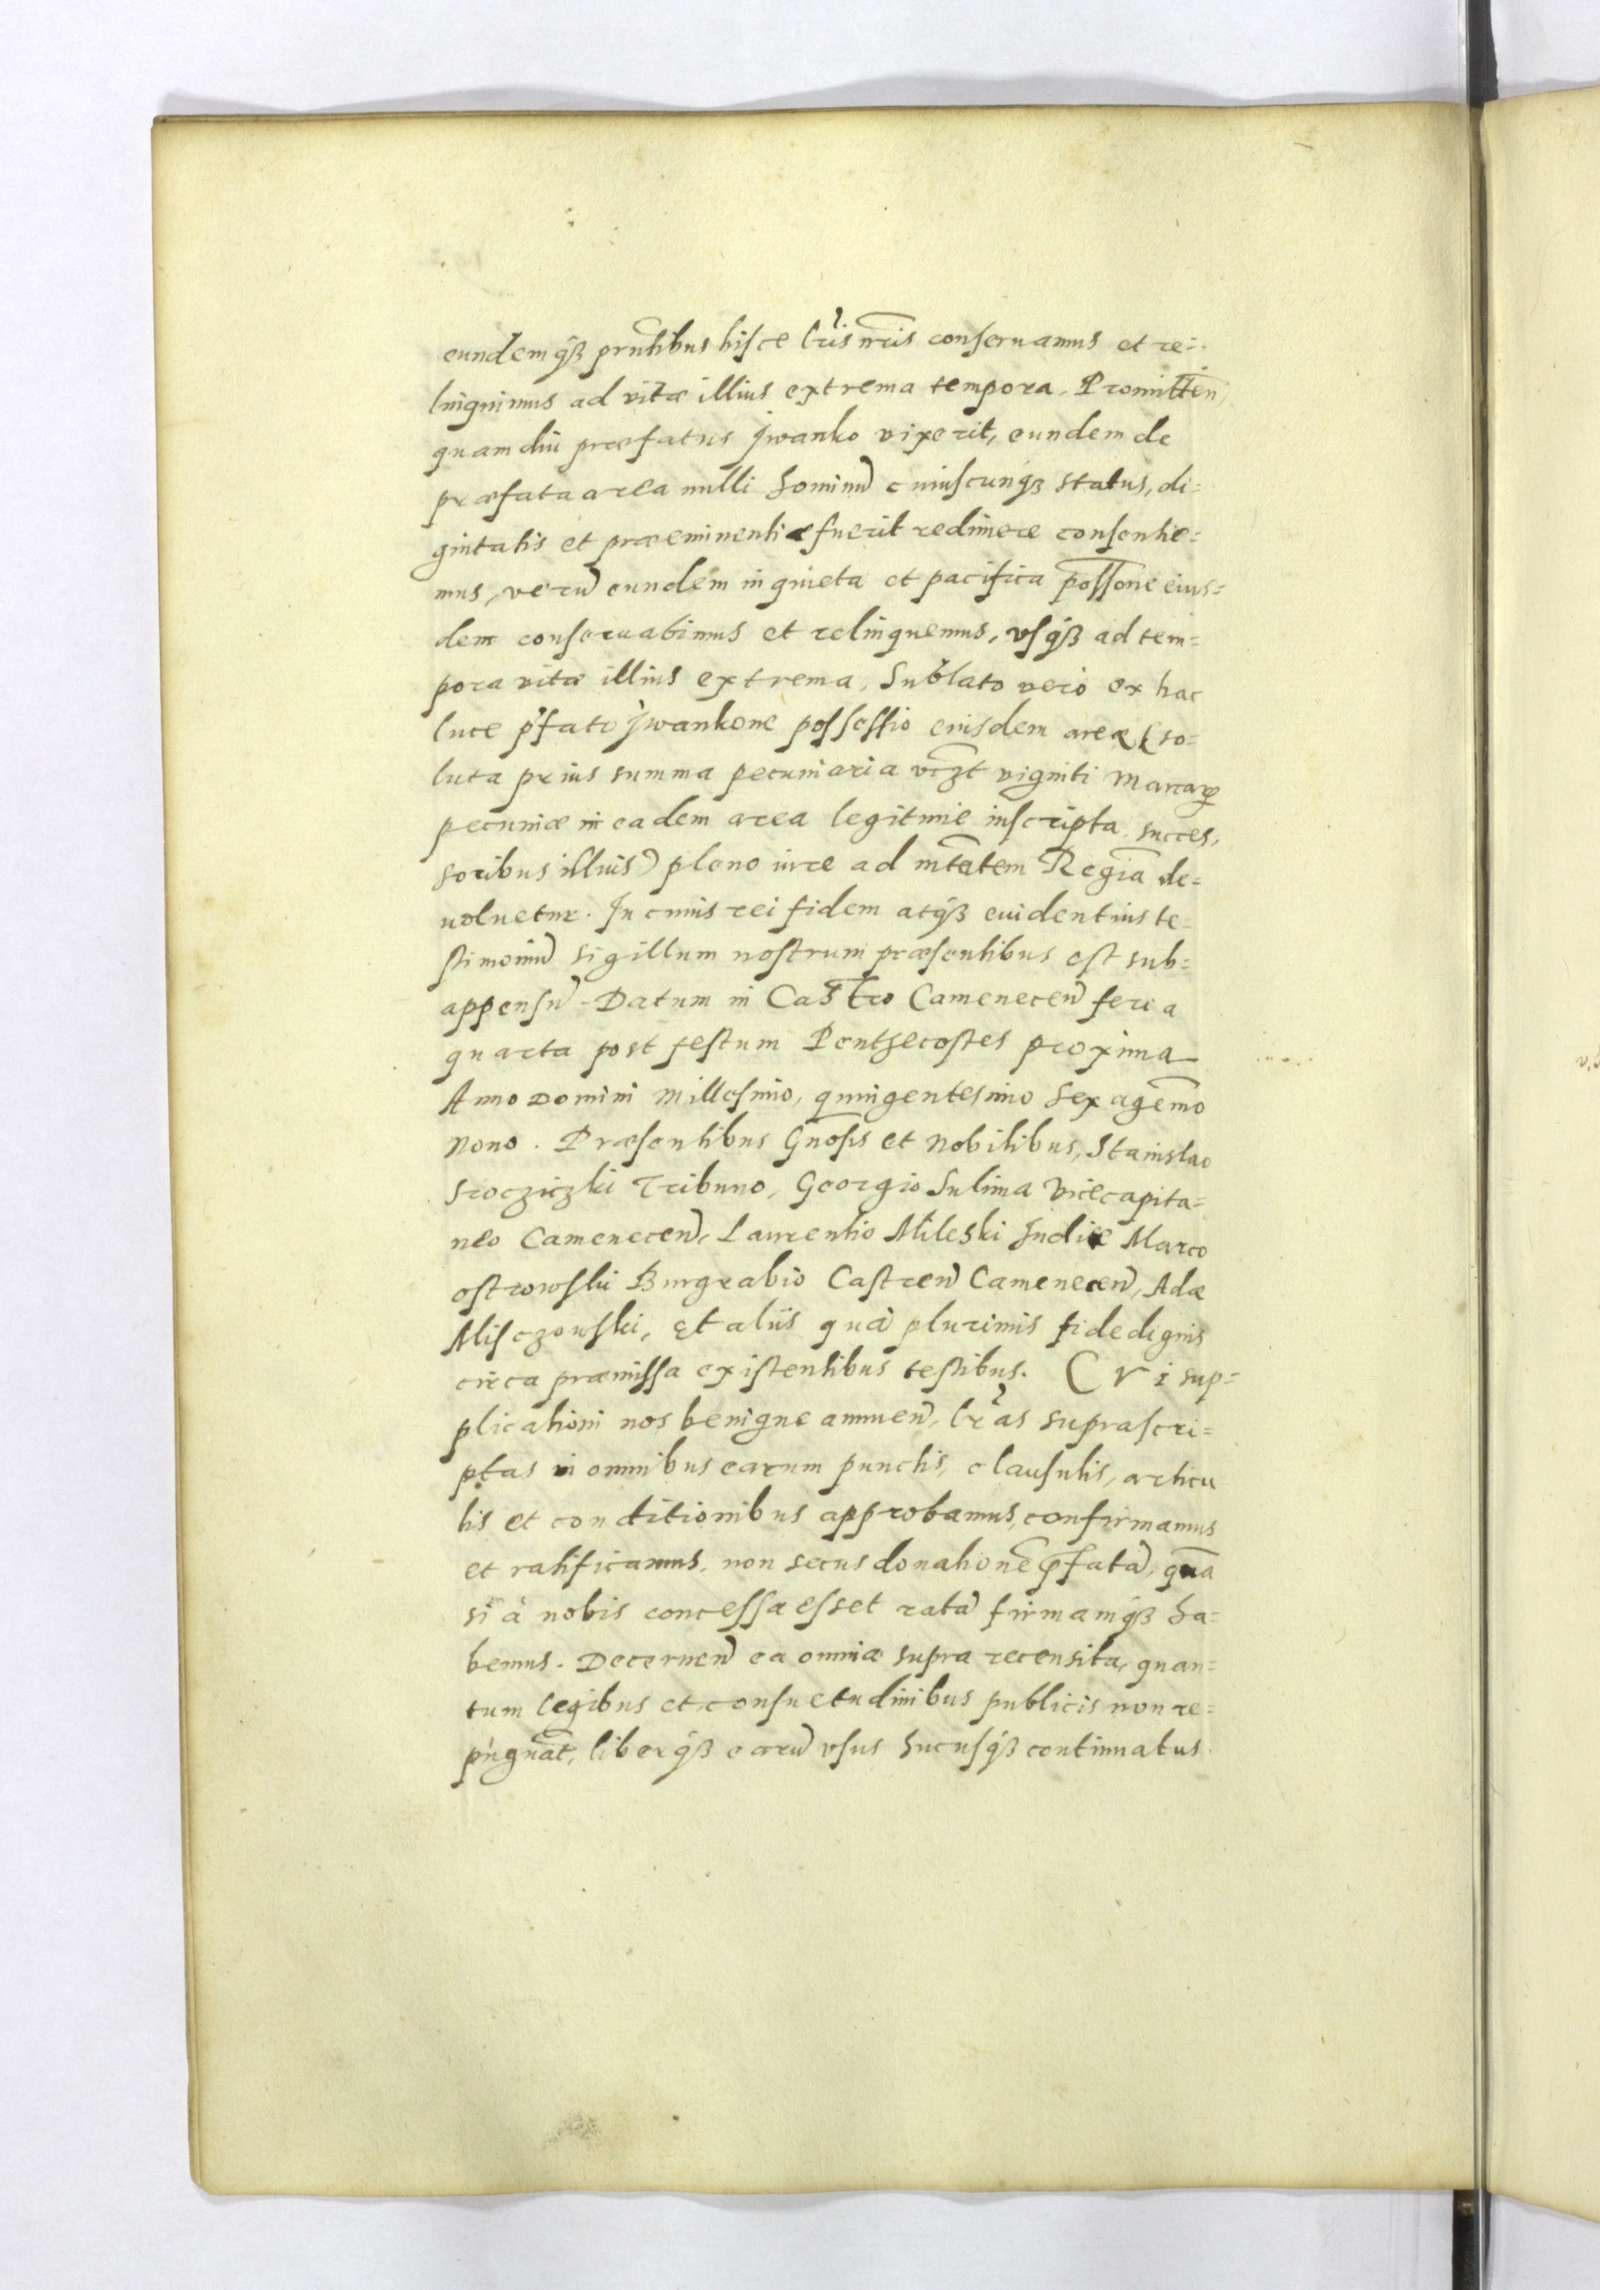 eundemq́ꝫ prn̄tibus hisce lr̃is nr̃is conseruamus et re=
linquimus ad vitæ illius extrema tempora. Promitteñ,
quam diu præfatus Jwanko vixerit, eundem de
præfata area nulli hominũ cuiuscunq́ꝫ status, di=
gnitatis et præeminentiæ fuerit redimere consentie=
mus, verũ eundem in quieta et pacifica possõne eius=
dem conseruabimus et relinquemus, vsq́ꝫ ad tem=
pora vitæ illius extrema, Sublato vero ex hac
luce p̃fato Jwankone possessio eiusdem areæ (so=
luta prius summa pecuniaria vcꝫt viginti Marcaꝝ
pecuniæ in eadem area legitime inscripta, succes,
soribus illius) pleno iure ad Mtãtem Regiã de=
uoluetur. In cuius rei fidem atq́ꝫ euidentius te=
stimoniũ sigillum nostrum præsentibus est sub=
appensũ. Datum in Castro Cameneceñ feria
quarta post festum Penthecostes proxima
Anno Domini Millesimo, quingentesimo Sexagẽmo
Nono. Præsentibus Gnosis et Nobilibus, Stanislao
Srocziczki Tribuno, Georgio Sulima Vicecapita=
neo Cameneceñ, Laurentio Mileski Judice Marco
ostrowski Burgrabio Castreñ Cameneceñ, Adæ
Misczowski, et aliis quã plurimis fidedignis
circa præmissa existentibus testibus. CVI sup=
plicationi nos benigne annueñ, lr̃as suprascri=
ptas in omnibus earum punctis, clausulis, articu
lis et conditionibus approbamus, confirmamus
et ratificamus, non secus donationẽ p̃fatã, quã
si à nobis concessa esset ratã firmamq́ꝫ ha=
bemus. Decerneñ ea omnia supra recensita, quan=
tum legibus et consuetudinibus publicis non re=
pugnãt, liberq́ꝫ earũ vsus hucusq́ꝫ continuatus.